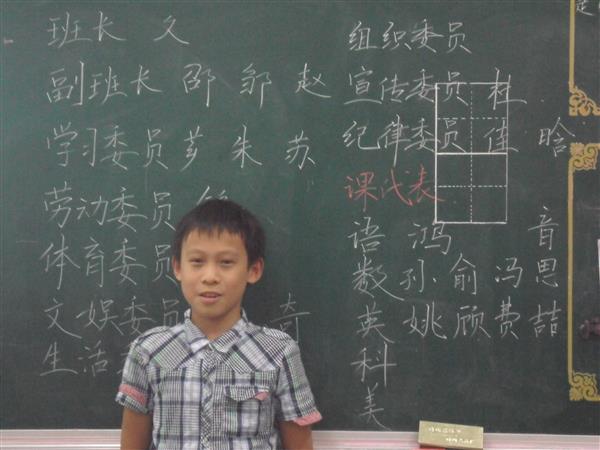 班长 久
副班长 邵 邹 赵
学习委员 芗 朱 苏
劳动委员
体育委员
文娱委员 奇
生活
组织委员
宣传委员 杜
纪律委员 佳 晗
课代表
语 鸿 音
数 孙 俞 冯 思
英 姚 顾 费 喆
科
美